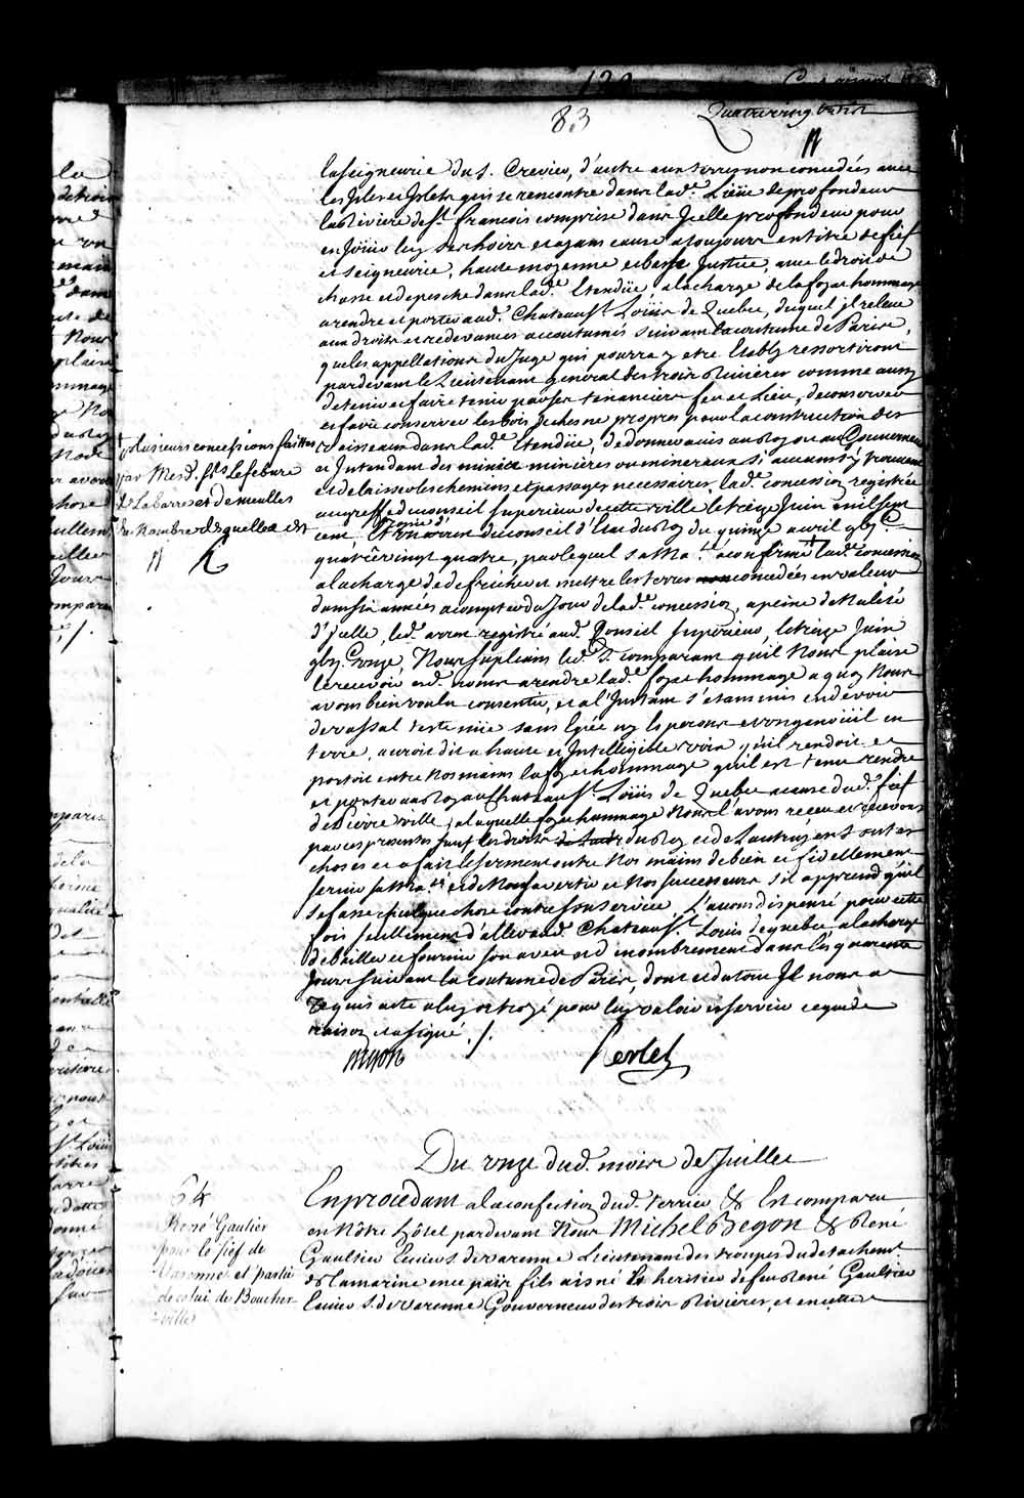 83
Quatrevingt trois
la seigneurie du S. Crevier, d'autre aux terres non concedées avec
les Isles et Islets qui se rencontre dans lad.e Lieüe de profondeur
la Riviere de S.t francois comprise dans Icelle profondeur pour
en Joüir luy ses hoirs et ayans cause a toujours en titre de fief
et seigneurie, haute moyenne et basse Justice, avec le droit de
chasse et de pesche dans lad.e Etendüe, a la charge de la foy et hommage
a rendre et porter aud. Chateau S.t Loüis de Quebec, duquel il releve
aux droits et redevances accoutumés suivant la coutume de Paris,
que les appellations du Juge qui pourra y etre Etably ressortiront
pardevant le Lieutenant general des trois Rivieres comme aussy
de tenir et faire tenir par ses tenanciers feu et Lieu, de conserver
et faire conserver les bois de chesne propres pour la construction des
Vaisseaux dans lad.e Etendüe, de donner avis au Roy ou au Gouverneur
et Intendant des mines minieres ou mineraux s'il aucuns s'y trouvent
et de laisser les chemins et passages necessaires, lad.e concession registrée
au greffe du conseil superieur de cette ville le treize Juin mil sept
cent, Et un arrest du conseil d'Etat du Roy du quinze avril gbj C.
quatrevingt quatre, par lequel sa Ma.té a confirmé + lad.e concession
a la charge de defricher et mettre les terres concedées en valeur
dans six années a compter du Jour de lad.e concession, a peine de Nulité
d'Icelle, led. arrest registré aud. Conseil Superieur, le treize Juin
Nous supliant led. S. comparant qu'il Nous plaise
le recevoir a rendre lad.e foy et hommage a quoy Nous
avons bien voulu consentir, et a l'Instant s'etant mis en devoir
de vassal teste nüe sans Epée ny Eperons et un genoüil en
terre, auroit dit a haute et Intelligible voix qu'il rendoit et
portoit entre nos mains la foy et hommage qu'il est tenu rendre
et porter au Roy au Chateau S.t Loüis de Quebec a cause dud. fief
de Pierreville, a laquelle foy et hommage Nous l'avons receu et recevons
par ces presentes sauf les droits du Roy et de l'autruy en toutes
choses et a fait le serment entre Nos mains de bien et fidellement
servir sa Ma.té et de Nous avertir et Nos successeurs s'il apprend qu'il
se fasse quelque chose contre son service, L'avons dispensé pour cette
fois seulement d'aller aud. Chateau S.t Louis de quebec a la charge
de bailler et fournir son aveu et denombrement dans les quarante
Jours suivant la Coutume de Paris, dont et du tout Il nous a
requis acte a luy octroyé pour luy valoir et servir ce que de
raison, et a signé ./.
Begon Hertel
+ plusieurs concessions faittes
par Mesd. S.rs Lefebure
de Labarre et Demeulles
du Nombre desquelles est
Du onze dud. mois de Juillet
64
René Gaultier
pour le fief de
Varenne et partie
de celui de Boucher
-ville
En procedant a la confection dud. terrier &c Est comparu
en Nôtre hôtel pardevant Nous Michel Begon &c René
Gaultier Ecuier S. de Varenne Lieutenant des troupes du detachem.t
de la marine en ce païs fils aisné & heritier de feu René Gaultier
Ecuier S. de Varenne Gouverneur des trois Rivieres, et en cette